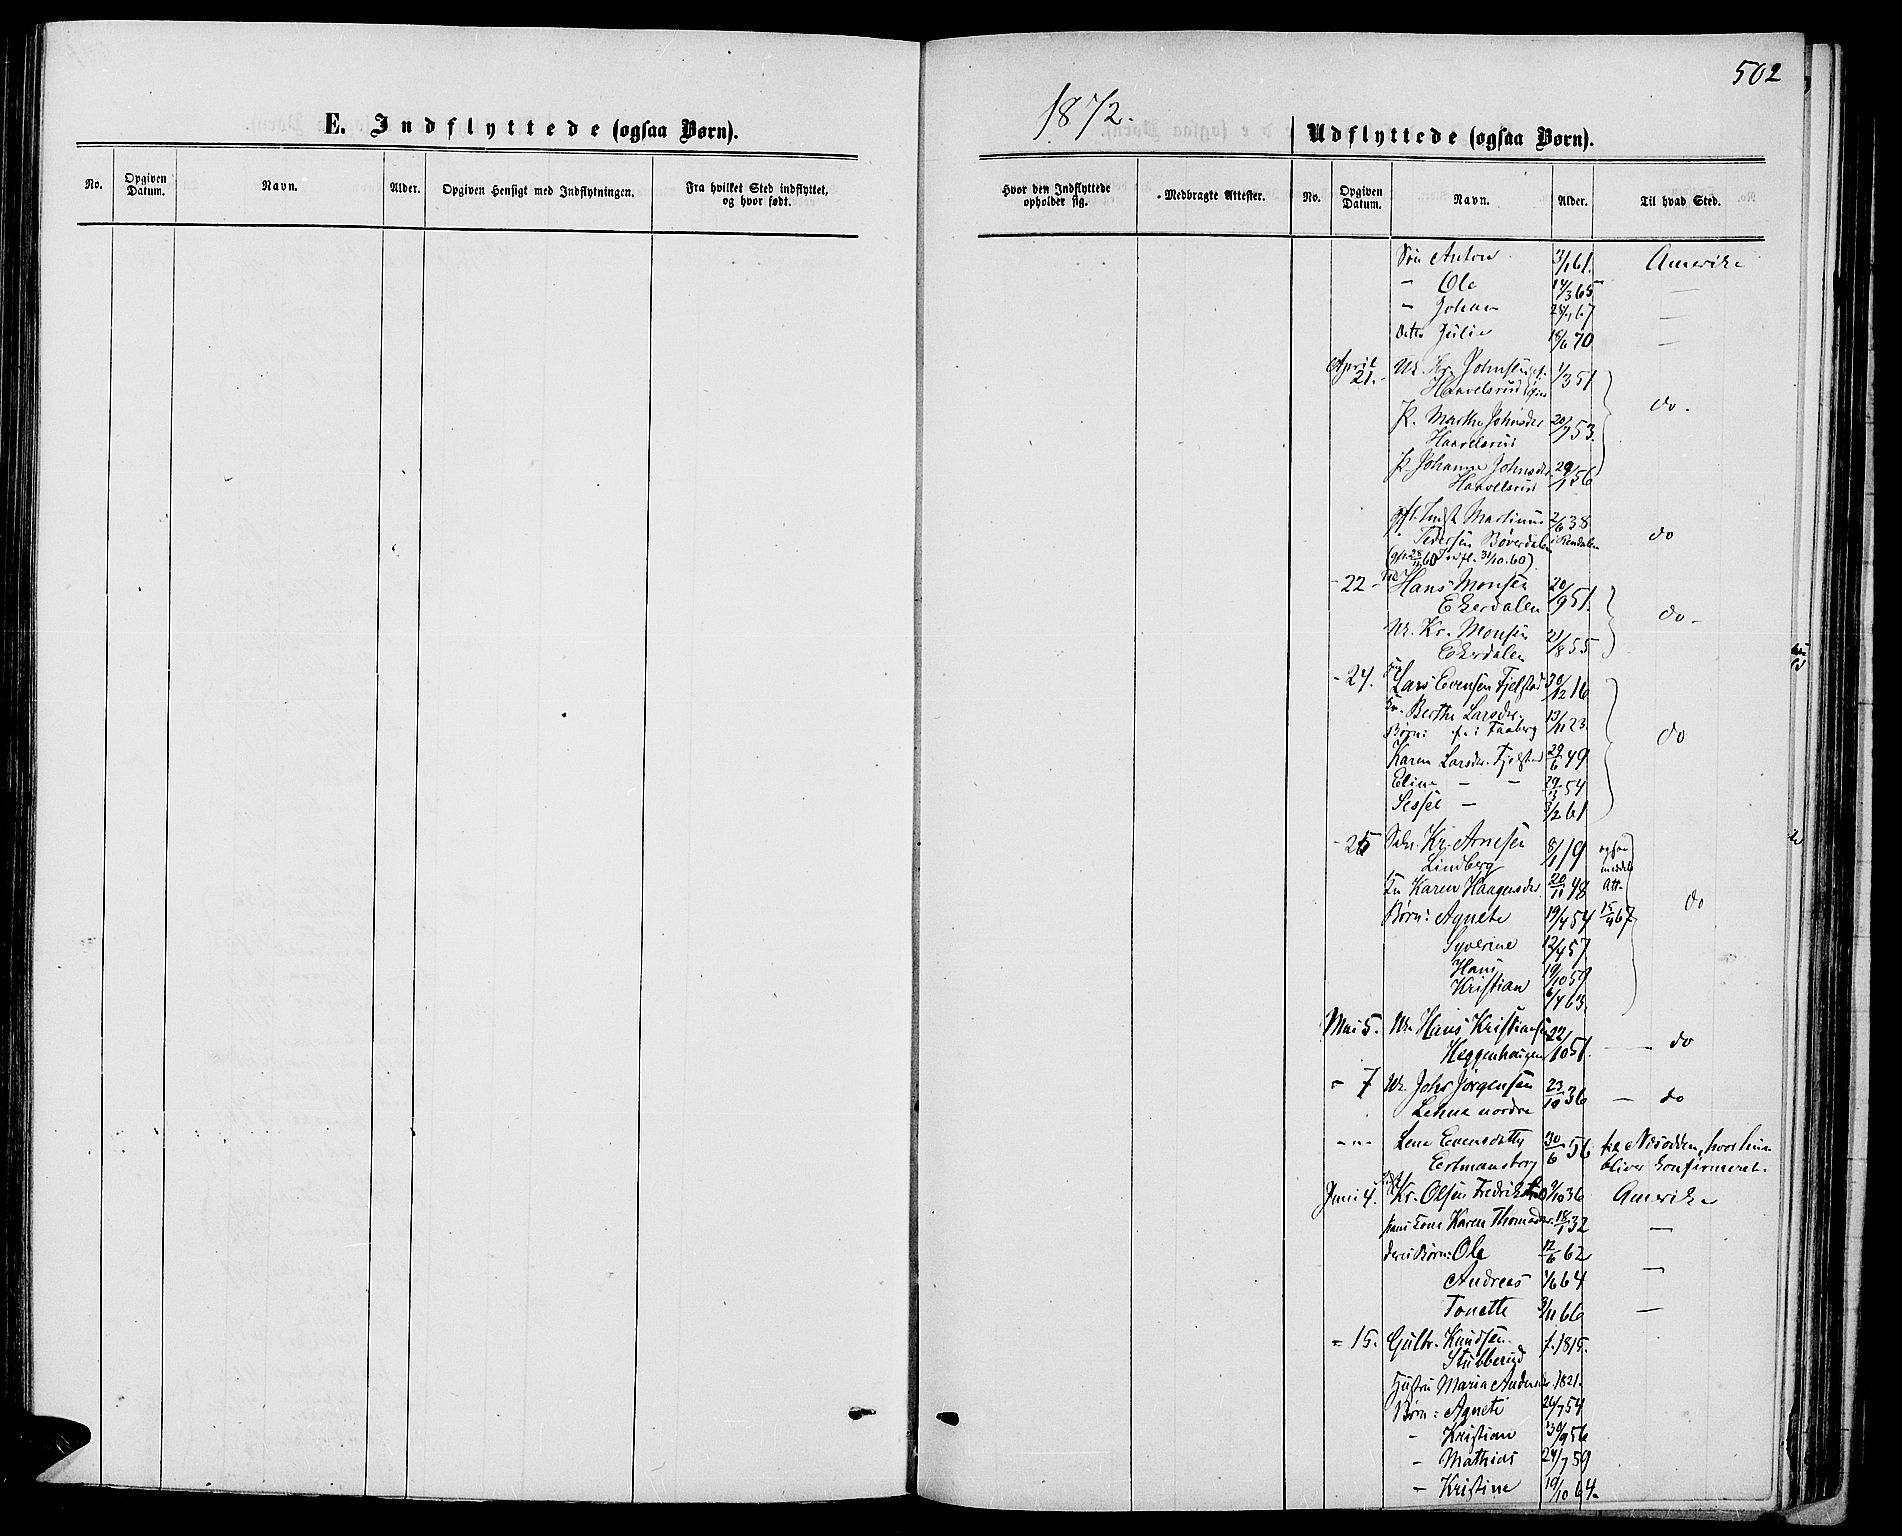 502
1872.
E. Indflyttede (ogsaa Børn).
Udflyttede (ogsaa Børn).
No.
Opgiven Datum.
Navn.
Alder.
Opgiven Hensigt med Indflytningen.
Fra hvilket Sted indflyttet, og hvor født.
Hvor den Indflyttede opholder sig.
Medbragte Attester.
No.
Opgiven Datum.
Navn.
Alder.
Til hvad Sted.
Søn Anton 3/1 61. Amerika
" Ole 14/3 65 —
" Johan 67 —
Datter Julie 18/6 70 —
April 21. Uk. Kr. Johnsen 1/3 51
Haavelsrud
P. Marthe Johnsdr 20/7 53. do.
Haavelsrud
P. Johanne Johnsdr. 29/1 56
Haavelsrud
Martinus 2/6 38 do
Pedersen Bøverdalen i Rendalen
Indfl. 31/10.60)
- 22 - Hans Monsen 20/9 51. do -
Ekerdalen
Uk. Kr. Monsen 21/8 55
Ekerdalen
- 24. Lars Evensen Fjelstad 30/12 16
Berthe Larsdr. 13/11 23.
Børn: f. i Faaberg do
Karen Larsdr. Fjelstad 29/6 49
Eline — — 54
Sessel — 3/2 61
- 25 Kr. Arnesen 8/1 19 ogsaa
Lindberg meddelt
Karen Haagensdr 20/11 48 Att.
Børn: Agnete 19/4 54 67 do
Syverine 12/4 57
Hans 19/10 59
Kristian 6/4 63.
Mai 5. Uk. Hans Kristiansen 22/10 51. — do
Heggenhaugen
- 7 Uk. Johs Jørgensen 23/10 36 — do
Lehne nordre
- " - Lene Evensdatter 30/6 56 til Næsodden, hvor hun
bliver konfirmeret.
Juni 4. Kr. Olsen 9/10 36 Amerika
hans Kone Karen Thomasdr. 18/1 32 —
deres Børn: Ole 12/6 62
Andreas 1/6 64 —
Tonette 3/11 66 —
- 15. Gulbr. Knudsen f. 1815.
Stubberud
Hustru Maria Andersdr. 1821.
Børn: Agnete 26/7 54
- Kristian 30/9 56
- Mathias 24/7 59
- Kristine 19/10 64.